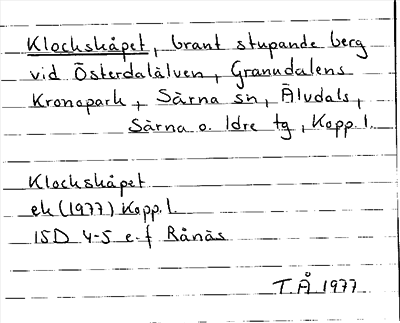 Klockskåpet, brant stupande berg
vid Österdalälven, Granndalens
Kronopark, Särna sn, Älvdals,
Särna o. Idre tg, Kopp. l.
Klockskåpet
ek (1977) Kopp. l.
15D 4-5 e-f Rånäs
T.Å 1977